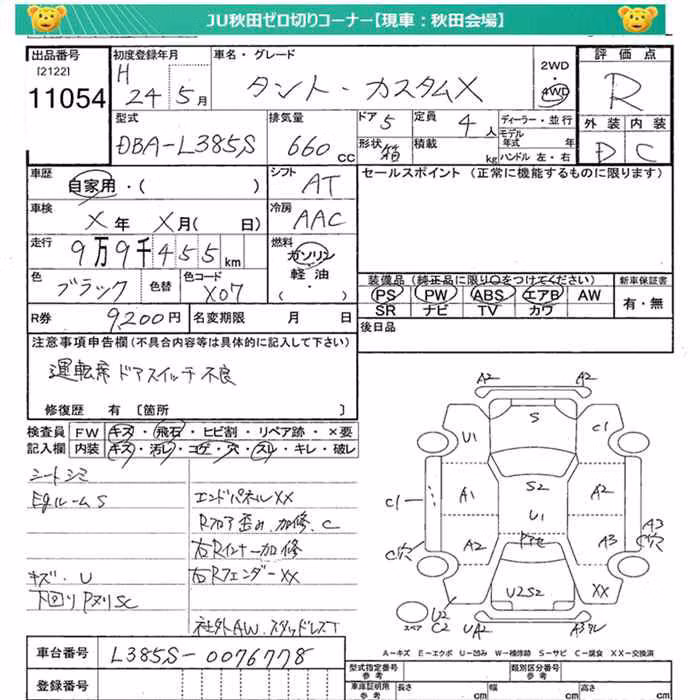 JU秋田ゼロ切りコーナー【現車：秋田会場】
出品番号
[2122]
11054
初度登録年月
H 24 5月
車名・グレード
タント・カスタムX
2WD
・
4WD
評価点
R
外装 内装
D C
型式
DBA-L385S
排気量
660 cc
ドア 5
形状 箱
定員 4人
積載 kg
ディーラー・並行
モデル年式 年式
ハンドル 左・右
車歴
自家用・( )
シフト
AT
セールスポイント（正常に機能するものに限ります）
車検
X年 X月( 日)
冷房
AAC
走行
9万9千455km
燃料
ガソリン
軽油
・( )
色
ブラック
色替
色コード
X07
装備品（純正品に限り○をつけてください）
PS PW ABS エアB AW
SR ナビ TV カワ
新車保証書
有・無
R券 9200円
名変期限 月 日
後日品
注意事項申告欄（不具合内容等は具体的に記入して下さい）
運転席ドアスイッチ不良
修復歴 有 〔箇所 〕
検査員 FW キズ・飛石・ヒビ割・リペア跡・×要
記入欄 内装 キズ・汚レ・コゲ・穴・スレ・キレ・破レ
シートシミ
EgルームS
エンドパネルXX
Rフロア歪み、加修、C
右Rインナー加修
キズ・U
右RフェンダーXX
下回りPヌリSC
社外AW、スタッドレスT
A2 A2
S
U1 C1
A1 S2 A2
U1
C1
C穴
A2 A3
A3
C穴
U2S2 XX
スペア
U2
C2 UA2 A3ワレ
A－キズ E－エクボ U－凹み W－補修跡 S－サビ C－腐食 XX－交換済
車台番号 L385S-0076778
登録番号
型式指定番号
参考
類別区分番号
参考
車庫証明用
参考
長さ cm
幅 cm
高さ cm